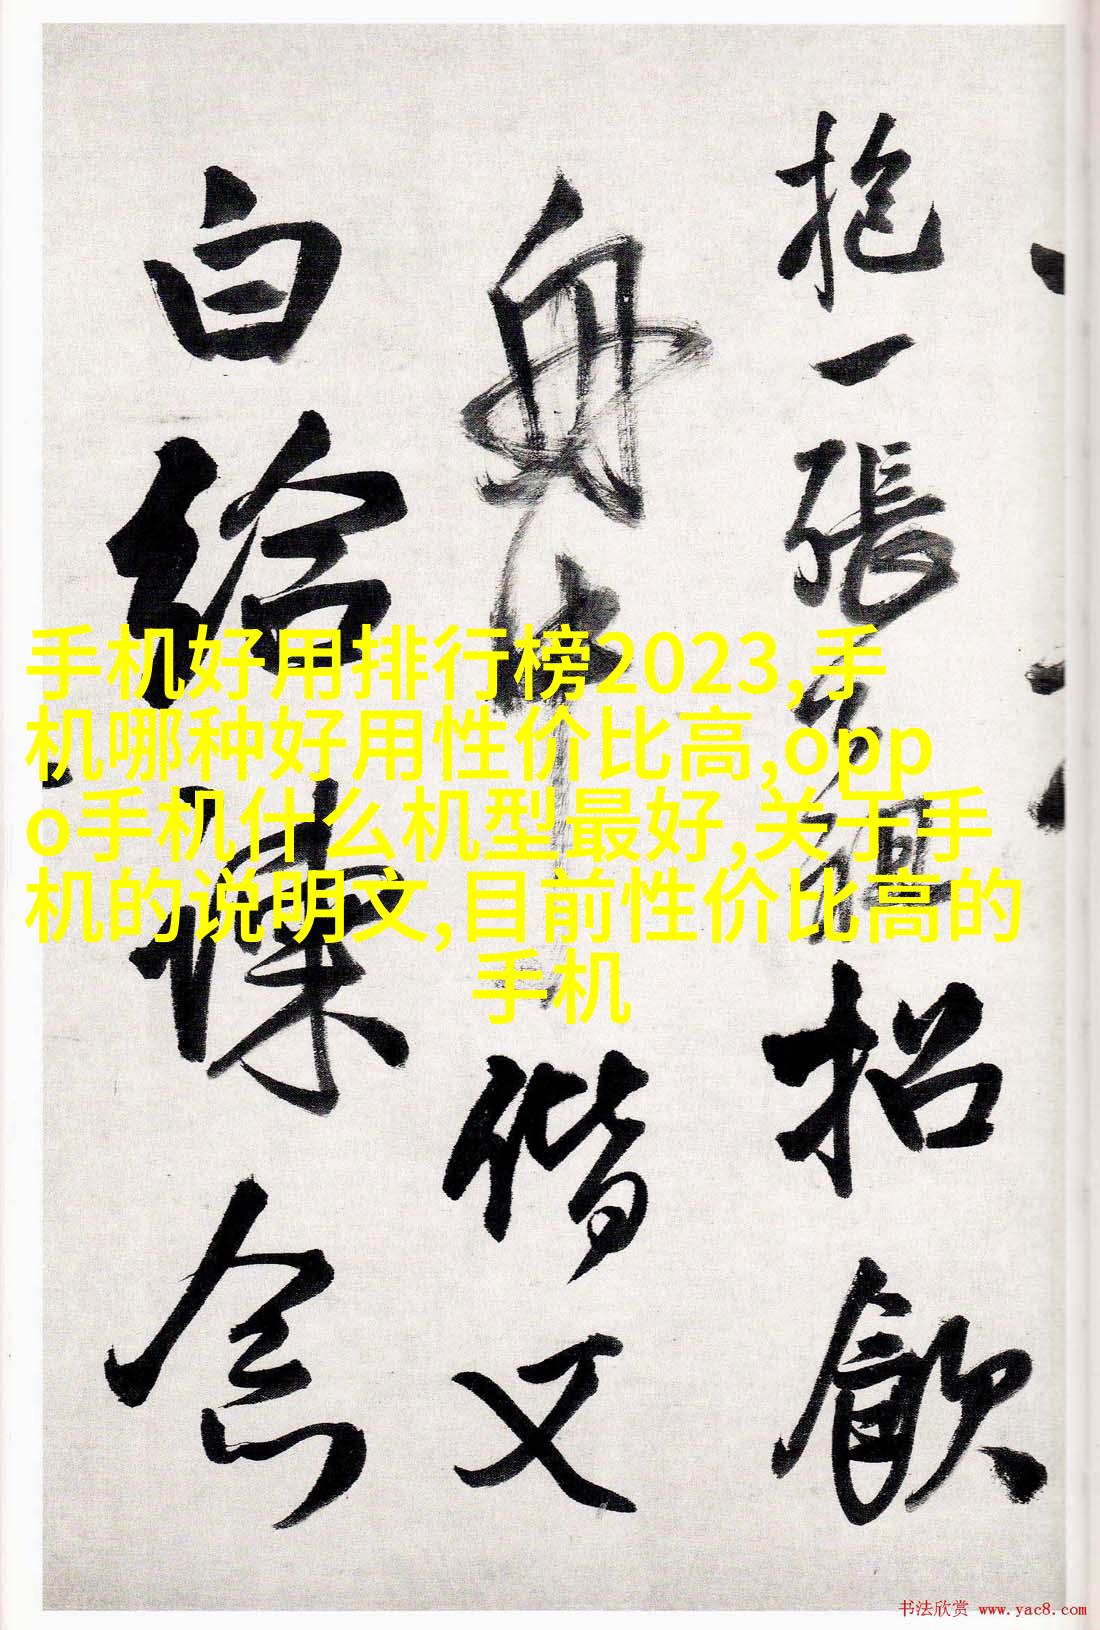 抱一張公組招飲
舟中偕文
白給諫念
手机好用排行榜2023,手
机哪种好用性价比高,opp
o手机什么机型最好,关于手
机的说明文,目前性价比高的
手机
书法欣赏 www.yac8.com